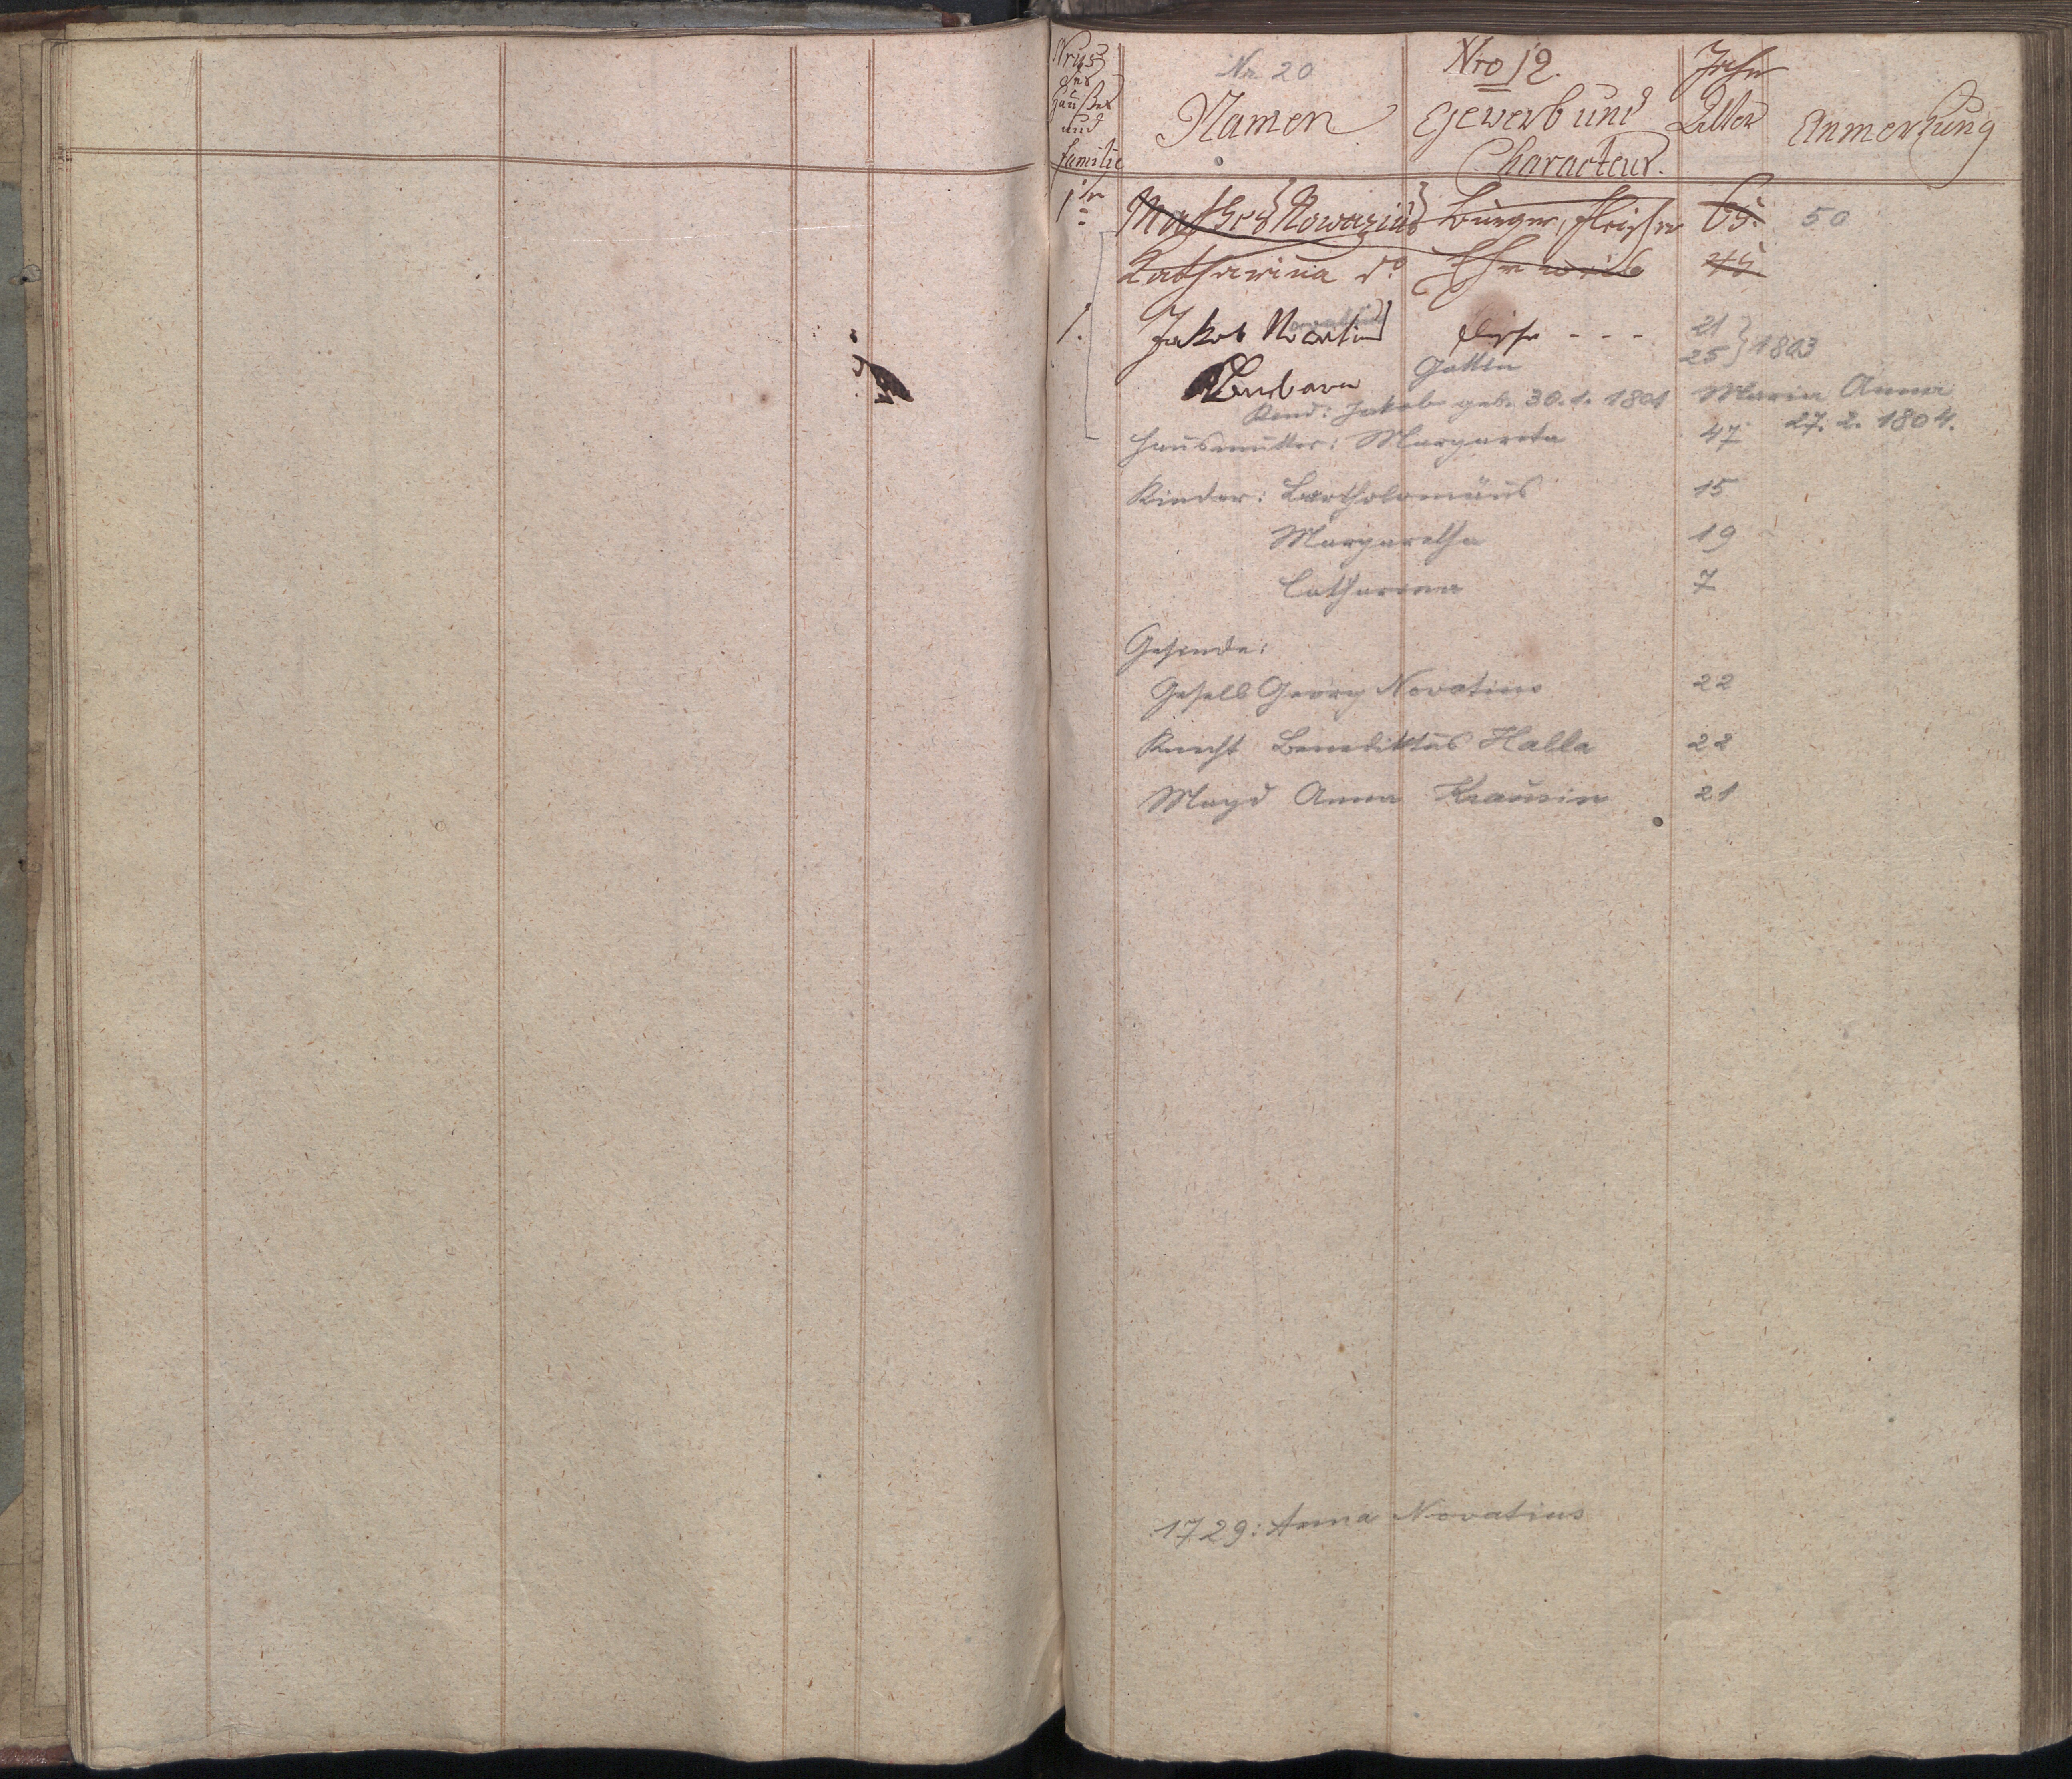 Nrus
des
Haußes
und
familie
Nr. 20
Namen
Nro 12.
Gewerb und
Characteur.
Jahr
Alter
Anmerkung
1te Matheus Nowazius Burger, fleischer 65. 50
Katharina do Eheweib 45
1. Jakob Novatius fleischer - - - 21 } 1803
Barbara Gattin 25
Kind: Jakob geb. 30. 1. 1801 Maria Anna
27. 2. 1804.
Hausmutter: Margareta 47
Kinder: Bartholomäus 15
Margaretha 19
Catharina 7
Gesinde:
Gesell Georg Novatius 22
Knecht Benediktus Halla 22
Magd Anna Krausin 21
1729: Anna Novatius